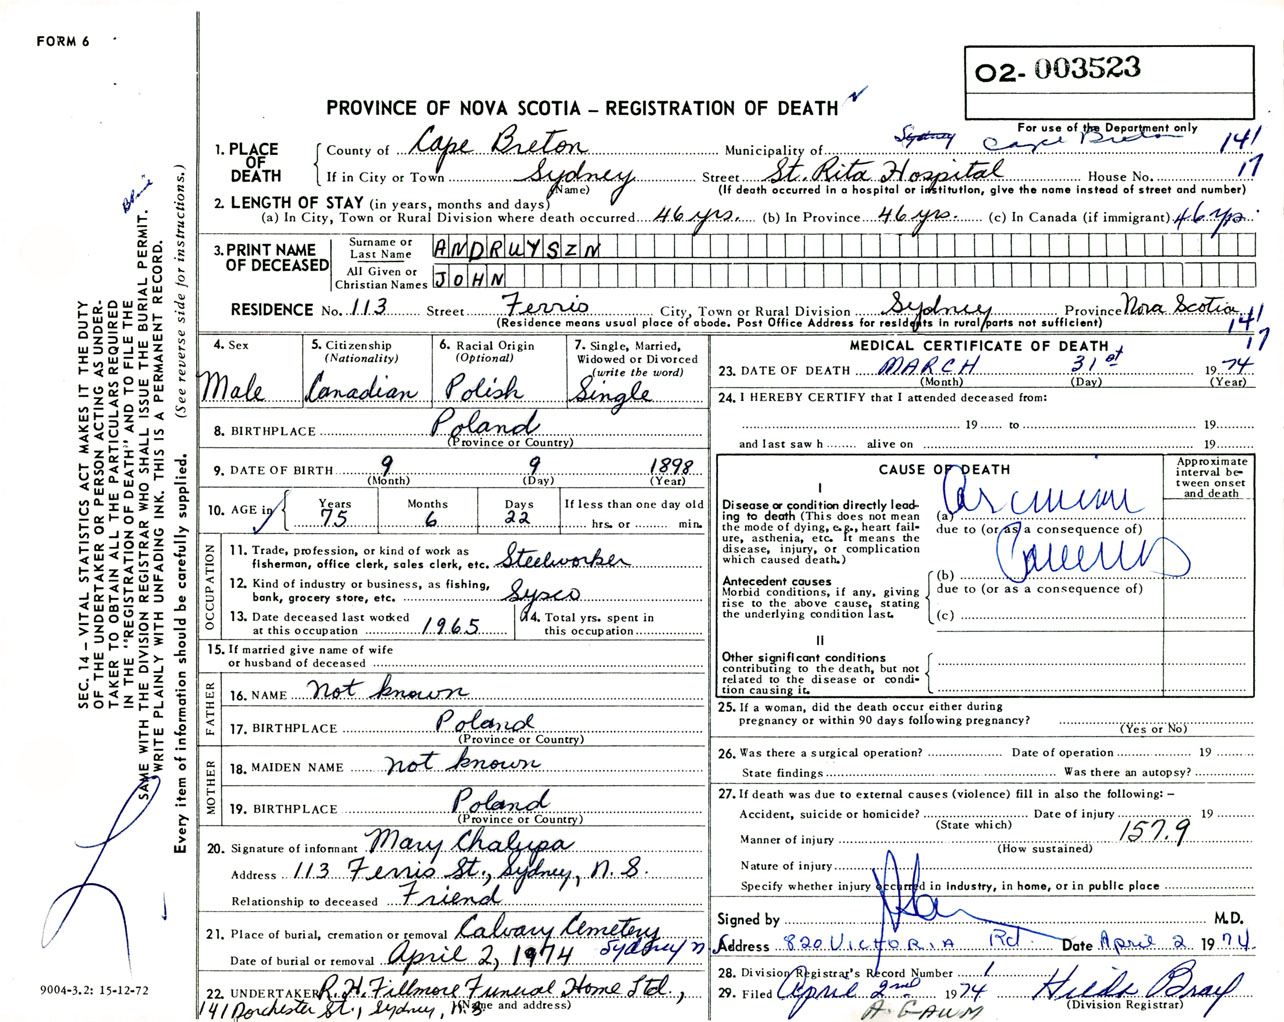 FORM 6
O2- 003523
PROVINCE OF NOVA SCOTIA – REGISTRATION OF DEATH
For use of the Department only
1. PLACE OF DEATH
County of Cape Breton Municipality of Sydney Cape Breton 141
If in City or Town Sydney Street St. Rita Hospital House No. 17
(Name) (If death occurred in a hospital or institution, give the name instead of street and number)
2. LENGTH OF STAY (in years, months and days)
(a) In City, Town or Rural Division where death occurred 46 yrs. (b) In Province 46 yrs. (c) In Canada (if immigrant) 46 yrs
3. PRINT NAME OF DECEASED
Surname or Last Name ANDRUYSZN
All Given or Christian Names JOHN
RESIDENCE No. 113 Street Ferris City, Town or Rural Division Sydney Province Nova Scotia
(Residence means usual place of abode. Post Office Address for residents in rural parts not sufficient) 141
17
4. Sex
Male
5. Citizenship
(Nationality)
Canadian
6. Racial Origin
(Optional)
Polish
7. Single, Married,
Widowed or Divorced
(write the word)
Single
8. BIRTHPLACE Poland
(Province or Country)
9. DATE OF BIRTH 9 9 1898
(Month) (Day) (Year)
10. AGE in
Years Months Days If less than one day old
75 6 22 hrs. or min.
OCCUPATION
11. Trade, profession, or kind of work as
fisherman, office clerk, sales clerk, etc. Steelworker
12. Kind of industry or business, as fishing,
bank, grocery store, etc. Sysco
13. Date deceased last worked
at this occupation 1965
14. Total yrs. spent in
this occupation
15. If married give name of wife
or husband of deceased
FATHER
16. NAME Not known
17. BIRTHPLACE Poland
(Province or Country)
MOTHER
18. MAIDEN NAME not known
19. BIRTHPLACE Poland
(Province or Country)
20. Signature of informant Mary Chalupa
Address 113 Ferris St., Sydney, N. S.
Relationship to deceased Friend
21. Place of burial, cremation or removal Calvary Cemetery
Date of burial or removal April 2, 1974 Sydney N.S.
22. UNDERTAKER R. H. Fillmore Funeral Home Ltd.,
(Name and address)
141 Dorchester St., Sydney, N.S.
MEDICAL CERTIFICATE OF DEATH
23. DATE OF DEATH MARCH 31st 1974
(Month) (Day) (Year)
24. I HEREBY CERTIFY that I attended deceased from:
19 to 19
and last saw h alive on 19
CAUSE OF DEATH
Approximate
interval be-
tween onset
and death
I
Disease or condition directly lead-
ing to death (This does not mean
the mode of dying, e.g., heart fail-
ure, asthenia, etc. It means the
disease, injury, or complication
which caused death.)
(a)
due to (or as a consequence of)
Antecedent causes
Morbid conditions, if any, giving
rise to the above cause, stating
the underlying condition last.
(b)
due to (or as a consequence of)
(c)
II
Other significant conditions
contributing to the death, but not
related to the disease or condi-
tion causing it.
25. If a woman, did the death occur either during
pregnancy or within 90 days following pregnancy?
(Yes or No)
26. Was there a surgical operation? Date of operation 19
State findings Was there an autopsy?
27. If death was due to external causes (violence) fill in also the following: –
Accident, suicide or homicide? Date of injury 19
(State which)
Manner of injury 157.9
(How sustained)
Nature of injury
Specify whether injury occurred in industry, in home, or in public place
Signed by M.D.
Address 820 VICTORIA Rd. Date April 2 1974
28. Division Registrar's Record Number 1
29. Filed April 2nd 1974 Hilda Bray
(Division Registrar)
A. GAUM
SEC. 14 – VITAL STATISTICS ACT MAKES IT THE DUTY
OF THE UNDERTAKER OR PERSON ACTING AS UNDER-
TAKER TO OBTAIN ALL THE PARTICULARS REQUIRED
IN THE "REGISTRATION OF DEATH" AND TO FILE THE
SAME WITH THE DIVISION REGISTRAR WHO SHALL ISSUE THE BURIAL PERMIT.
WRITE PLAINLY WITH UNFADING INK. THIS IS A PERMANENT RECORD.
Every item of information should be carefully supplied. (See reverse side for instructions.)
9004-3.2: 15-12-72